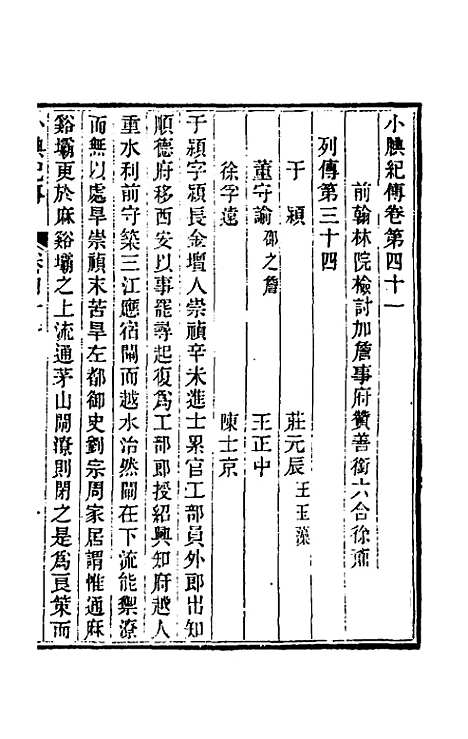 小腆紀傳卷第四十一
前翰林院檢討加詹事府贊善銜六合徐鼒
列傳第三十四
于穎 莊元辰 王玉藻
董守諭 邵之詹 王正中
徐孚遠 陳士京
于穎字穎長金壇人崇禎辛未進士累官工部員外郎出知
順德府移西安以事罷尋起復爲工部郎授紹興知府越人
重水利前守築三江應宿閘而越水治然閘在下流能禦潦
而無以處旱崇禎末苦旱左都御史劉宗周家居謂惟通麻
谿壩更於麻谿壩之上流通茅山閘潦則閉之是爲良策而
小腆紀傳